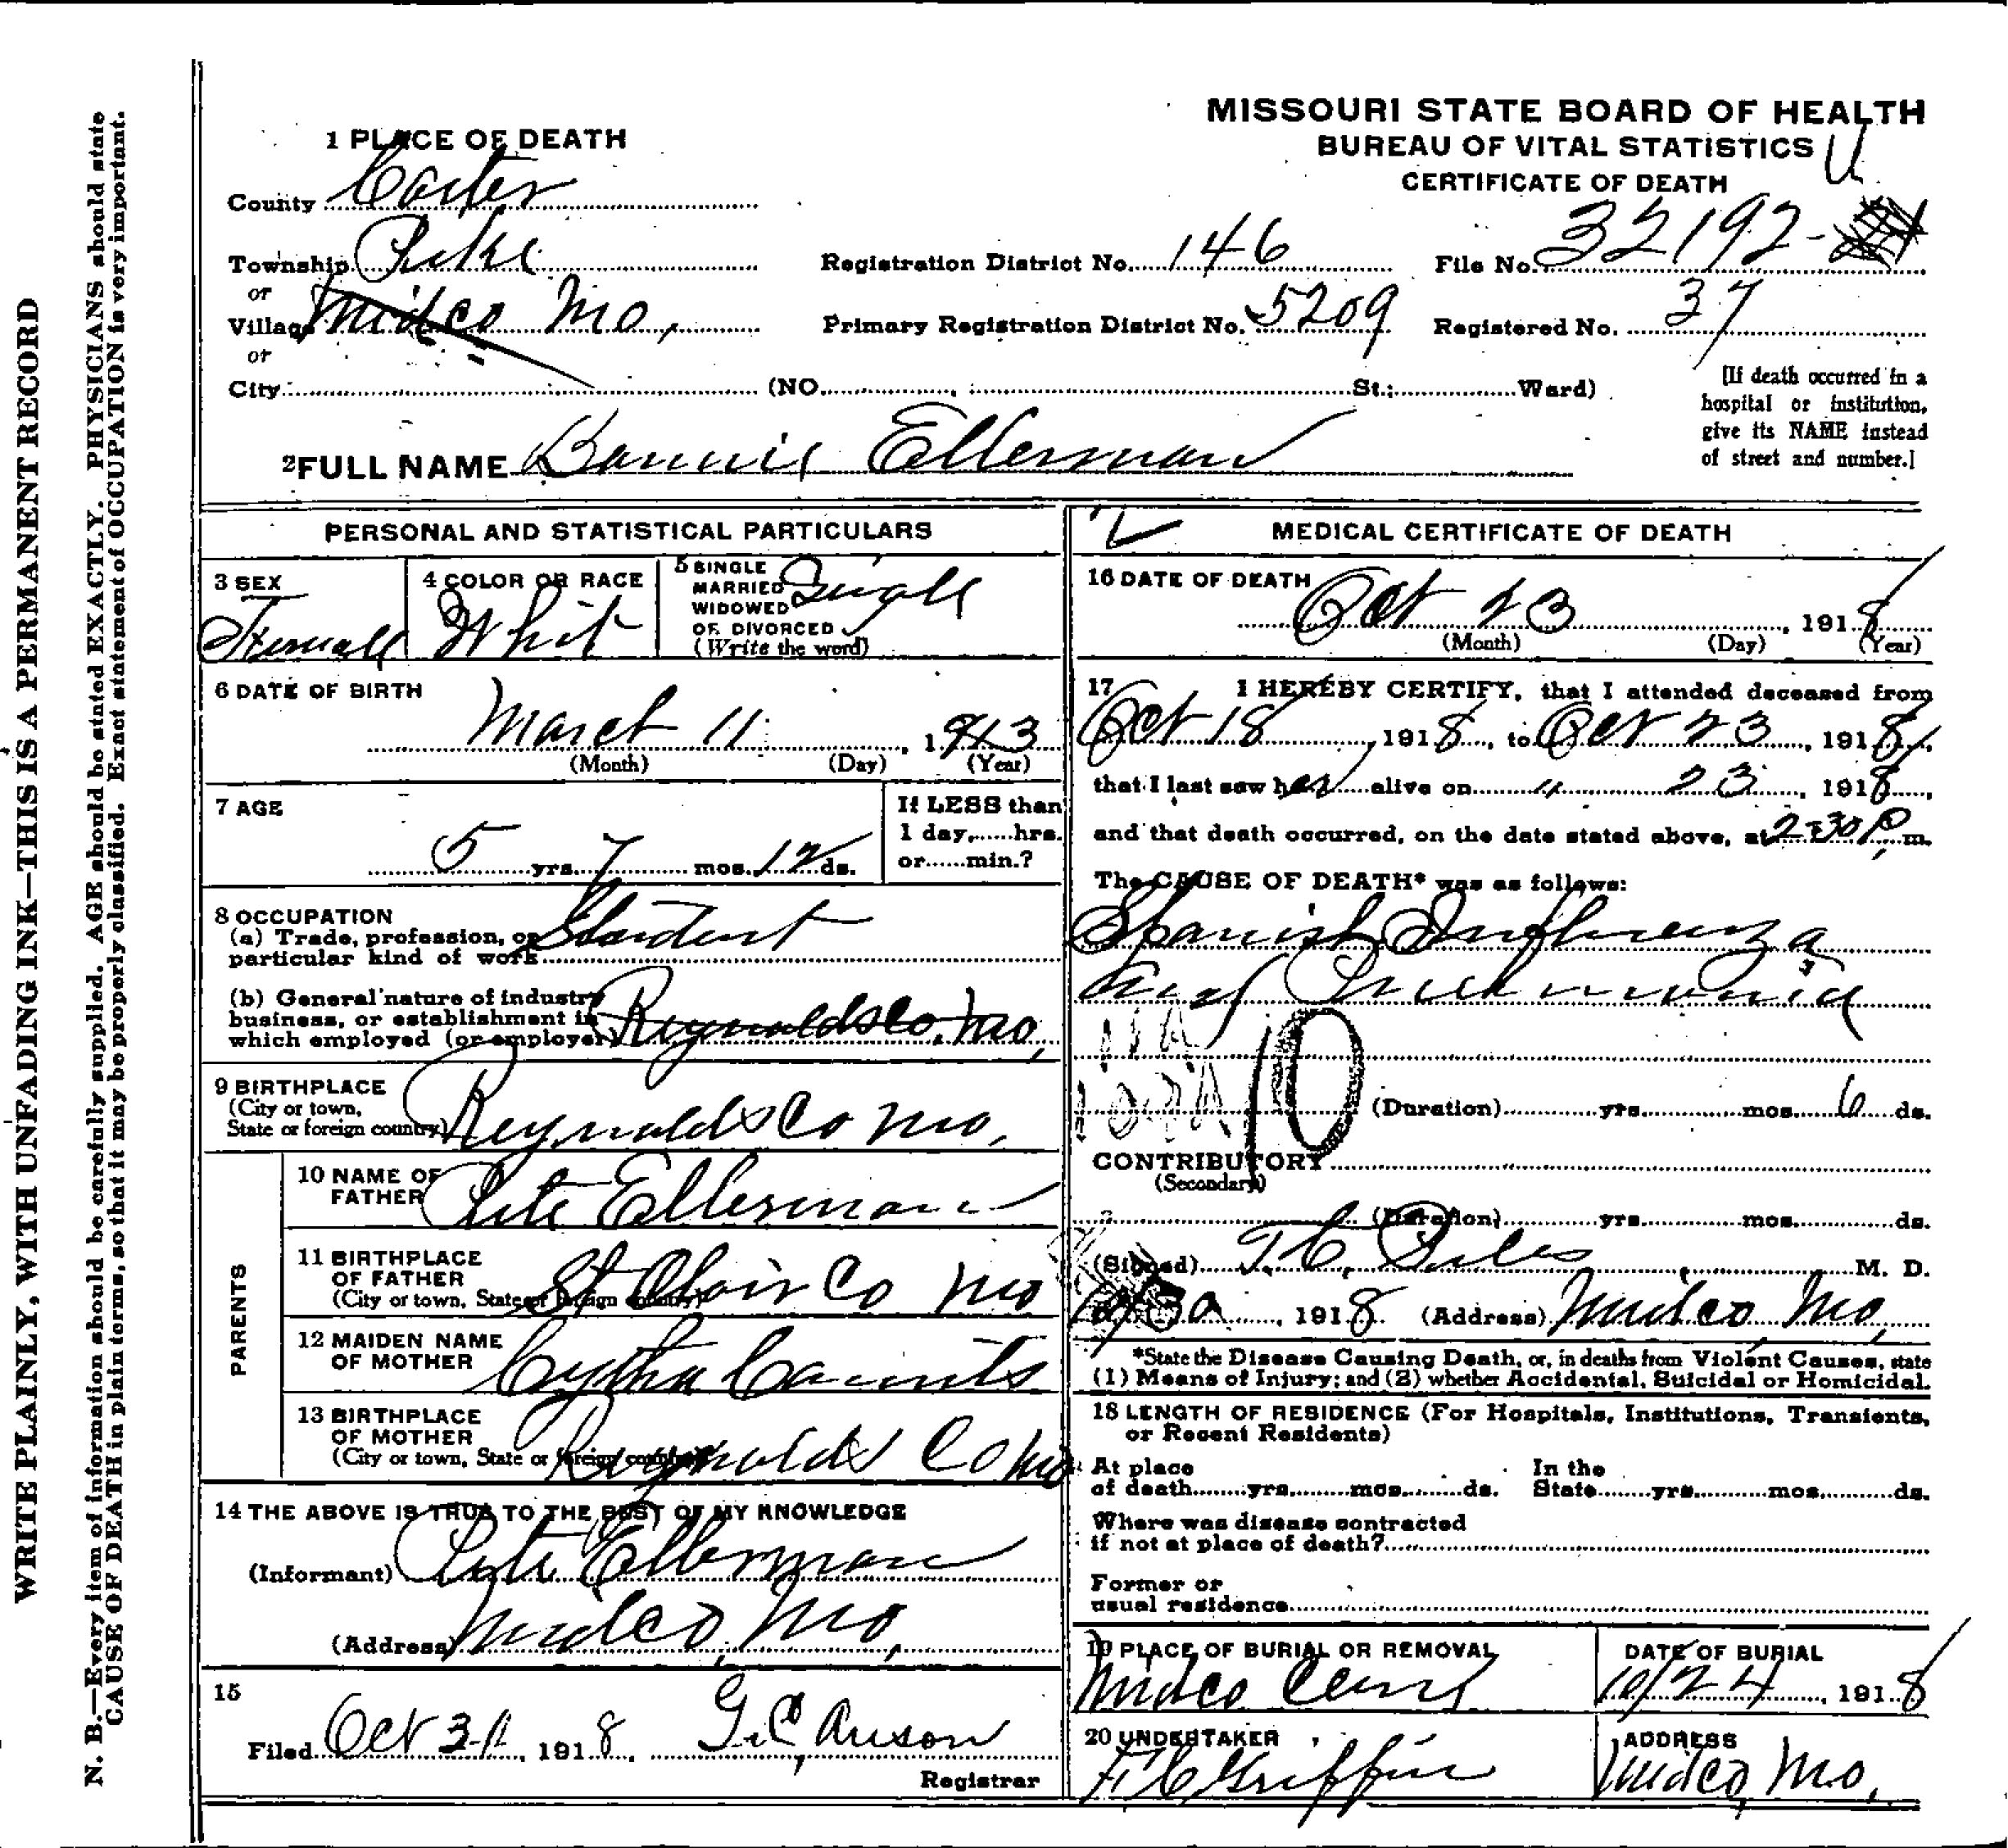 WRITE PLAINLY, WITH UNFADING INK—THIS IS A PERMANENT RECORD
N. B.—Every item of information should be carefully supplied. AGE should be stated EXACTLY. PHYSICIANS should state
CAUSE OF DEATH in plain terms, so that it may be properly classified. Exact statement of OCCUPATION is very important.
MISSOURI STATE BOARD OF HEALTH
BUREAU OF VITAL STATISTICS
CERTIFICATE OF DEATH
1 PLACE OF DEATH
County Carter
Township Pike
or
Village Midco Mo,
or
City (NO. , St.; Ward)
Registration District No. 146
Primary Registration District No. 5209
File No. 32192-
Registered No. 37
[If death occurred in a
hospital or institution,
give its NAME instead
of street and number.]
2 FULL NAME Bonnie Ellerman
PERSONAL AND STATISTICAL PARTICULARS
3 SEX
Female
4 COLOR OR RACE
Whit
5 SINGLE
MARRIED
WIDOWED
OR DIVORCED
(Write the word)
Single
6 DATE OF BIRTH
March 11, 1913
(Month) (Day) (Year)
7 AGE
5 yrs. 7 mos. 12 ds.
If LESS than
1 day, hrs.
or min.?
8 OCCUPATION
(a) Trade, profession, or
particular kind of work Student
(b) General nature of industry
business, or establishment in
which employed (or employer) Reynolds Co, Mo,
9 BIRTHPLACE
(City or town,
State or foreign country) Reynolds Co Mo,
PARENTS
10 NAME OF
FATHER Pete Ellerman
11 BIRTHPLACE
OF FATHER
(City or town, State or foreign country) St Clair Co Mo
12 MAIDEN NAME
OF MOTHER
13 BIRTHPLACE
OF MOTHER
(City or town, State or foreign country) Reynolds Co Mo
14 THE ABOVE IS TRUE TO THE BEST OF MY KNOWLEDGE
(Informant) Pete Ellerman
(Address) Midco, Mo,
15
Filed Oct 31, 1918, G. C. Anson
Registrar
MEDICAL CERTIFICATE OF DEATH
16 DATE OF DEATH
Oct 23, 1918
(Month) (Day) (Year)
17 I HEREBY CERTIFY, that I attended deceased from
Oct 18, 1918, to Oct 23, 1918,
that I last saw her alive on " 23, 1918,
and that death occurred, on the date stated above, at 2:30 P m.
The CAUSE OF DEATH* was as follows:
Spanish Influenza
and Pneumonia
10
(Duration) yrs. mos. 6 ds.
CONTRIBUTORY
(Secondary)
(Duration) yrs. mos. ds.
(Signed) T. C. Piles M. D.
10/30, 1918 (Address) Midco, Mo,
*State the Disease Causing Death, or, in deaths from Violent Causes, state
(1) Means of Injury; and (2) whether Accidental, Suicidal or Homicidal.
18 LENGTH OF RESIDENCE (For Hospitals, Institutions, Transients,
or Recent Residents)
At place
of death yrs. mos. ds.
In the
State yrs. mos. ds.
Where was disease contracted
if not at place of death?
Former or
usual residence
19 PLACE OF BURIAL OR REMOVAL
Midco Cemy
DATE OF BURIAL
10/24, 1918
20 UNDERTAKER
F C Griffin
ADDRESS
Midco, Mo,